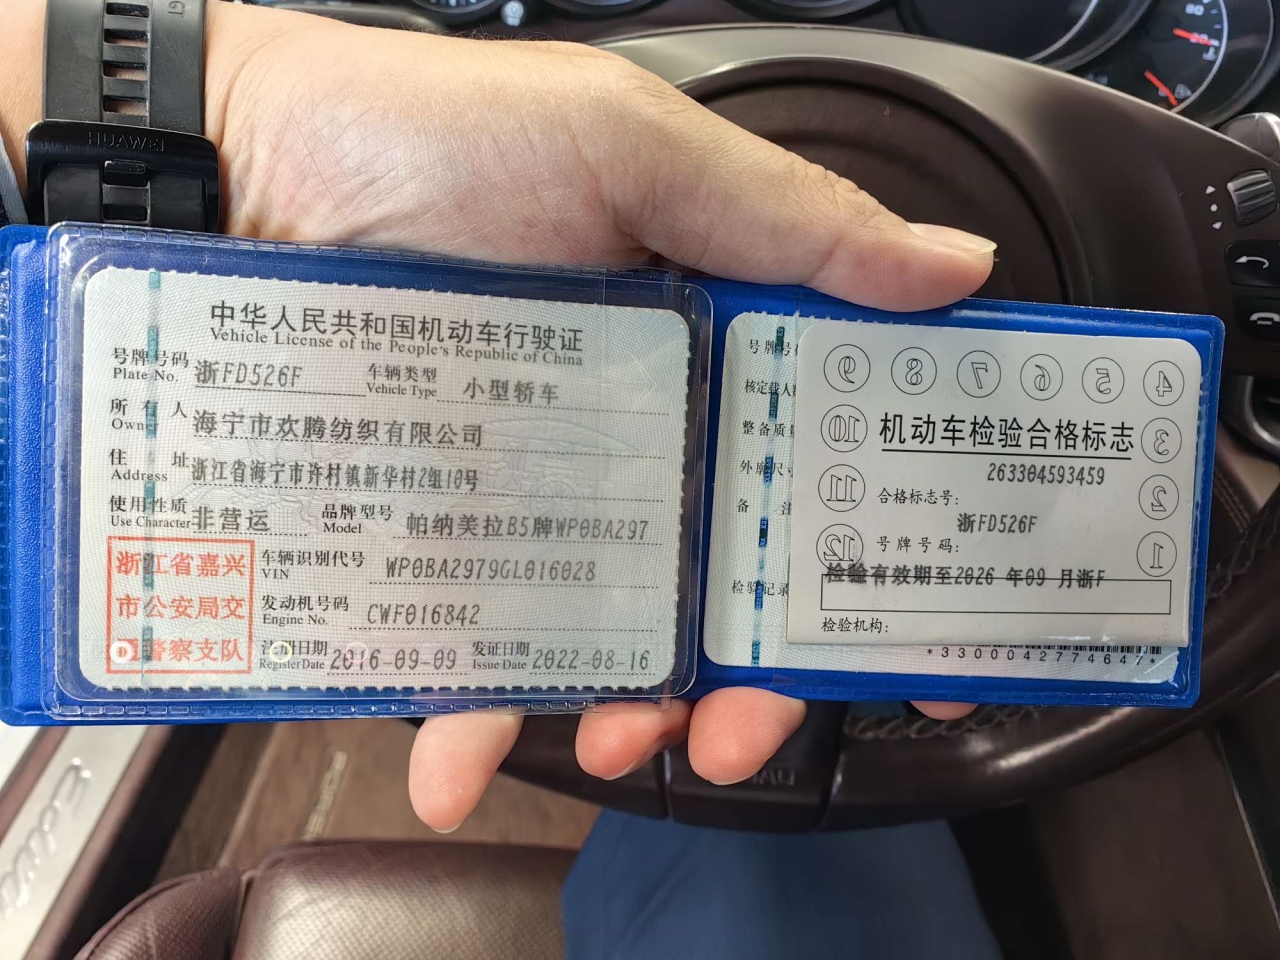 HUAWEI
中华人民共和国机动车行驶证
Vehicle License of the People's Republic of China
号牌号码 浙FD526F 车辆类型 小型轿车
Plate No. Vehicle Type
所有人 海宁市欢腾纺织有限公司
Owner
住址 浙江省海宁市许村镇新华村2组10号
Address
使用性质 非营运 品牌型号 帕纳美拉B5牌WP0BA297
Use Character Model
浙江省嘉兴
市公安局交
通警察支队
车辆识别代号 WP0BA2979GL016028
VIN
发动机号码 CWF016842
Engine No.
注册日期 2016-09-09 发证日期 2022-08-16
Register Date Issue Date
号牌号
核定载人
整备质量
外廓尺寸
备 注
检验记录
9 8 7 6 5 4
10 3
11 2
12 1
机动车检验合格标志
263304593459
合格标志号:
浙FD526F
号牌号码:
检验有效期至2026 年09 月浙F
检验机构:
*3300042774647*